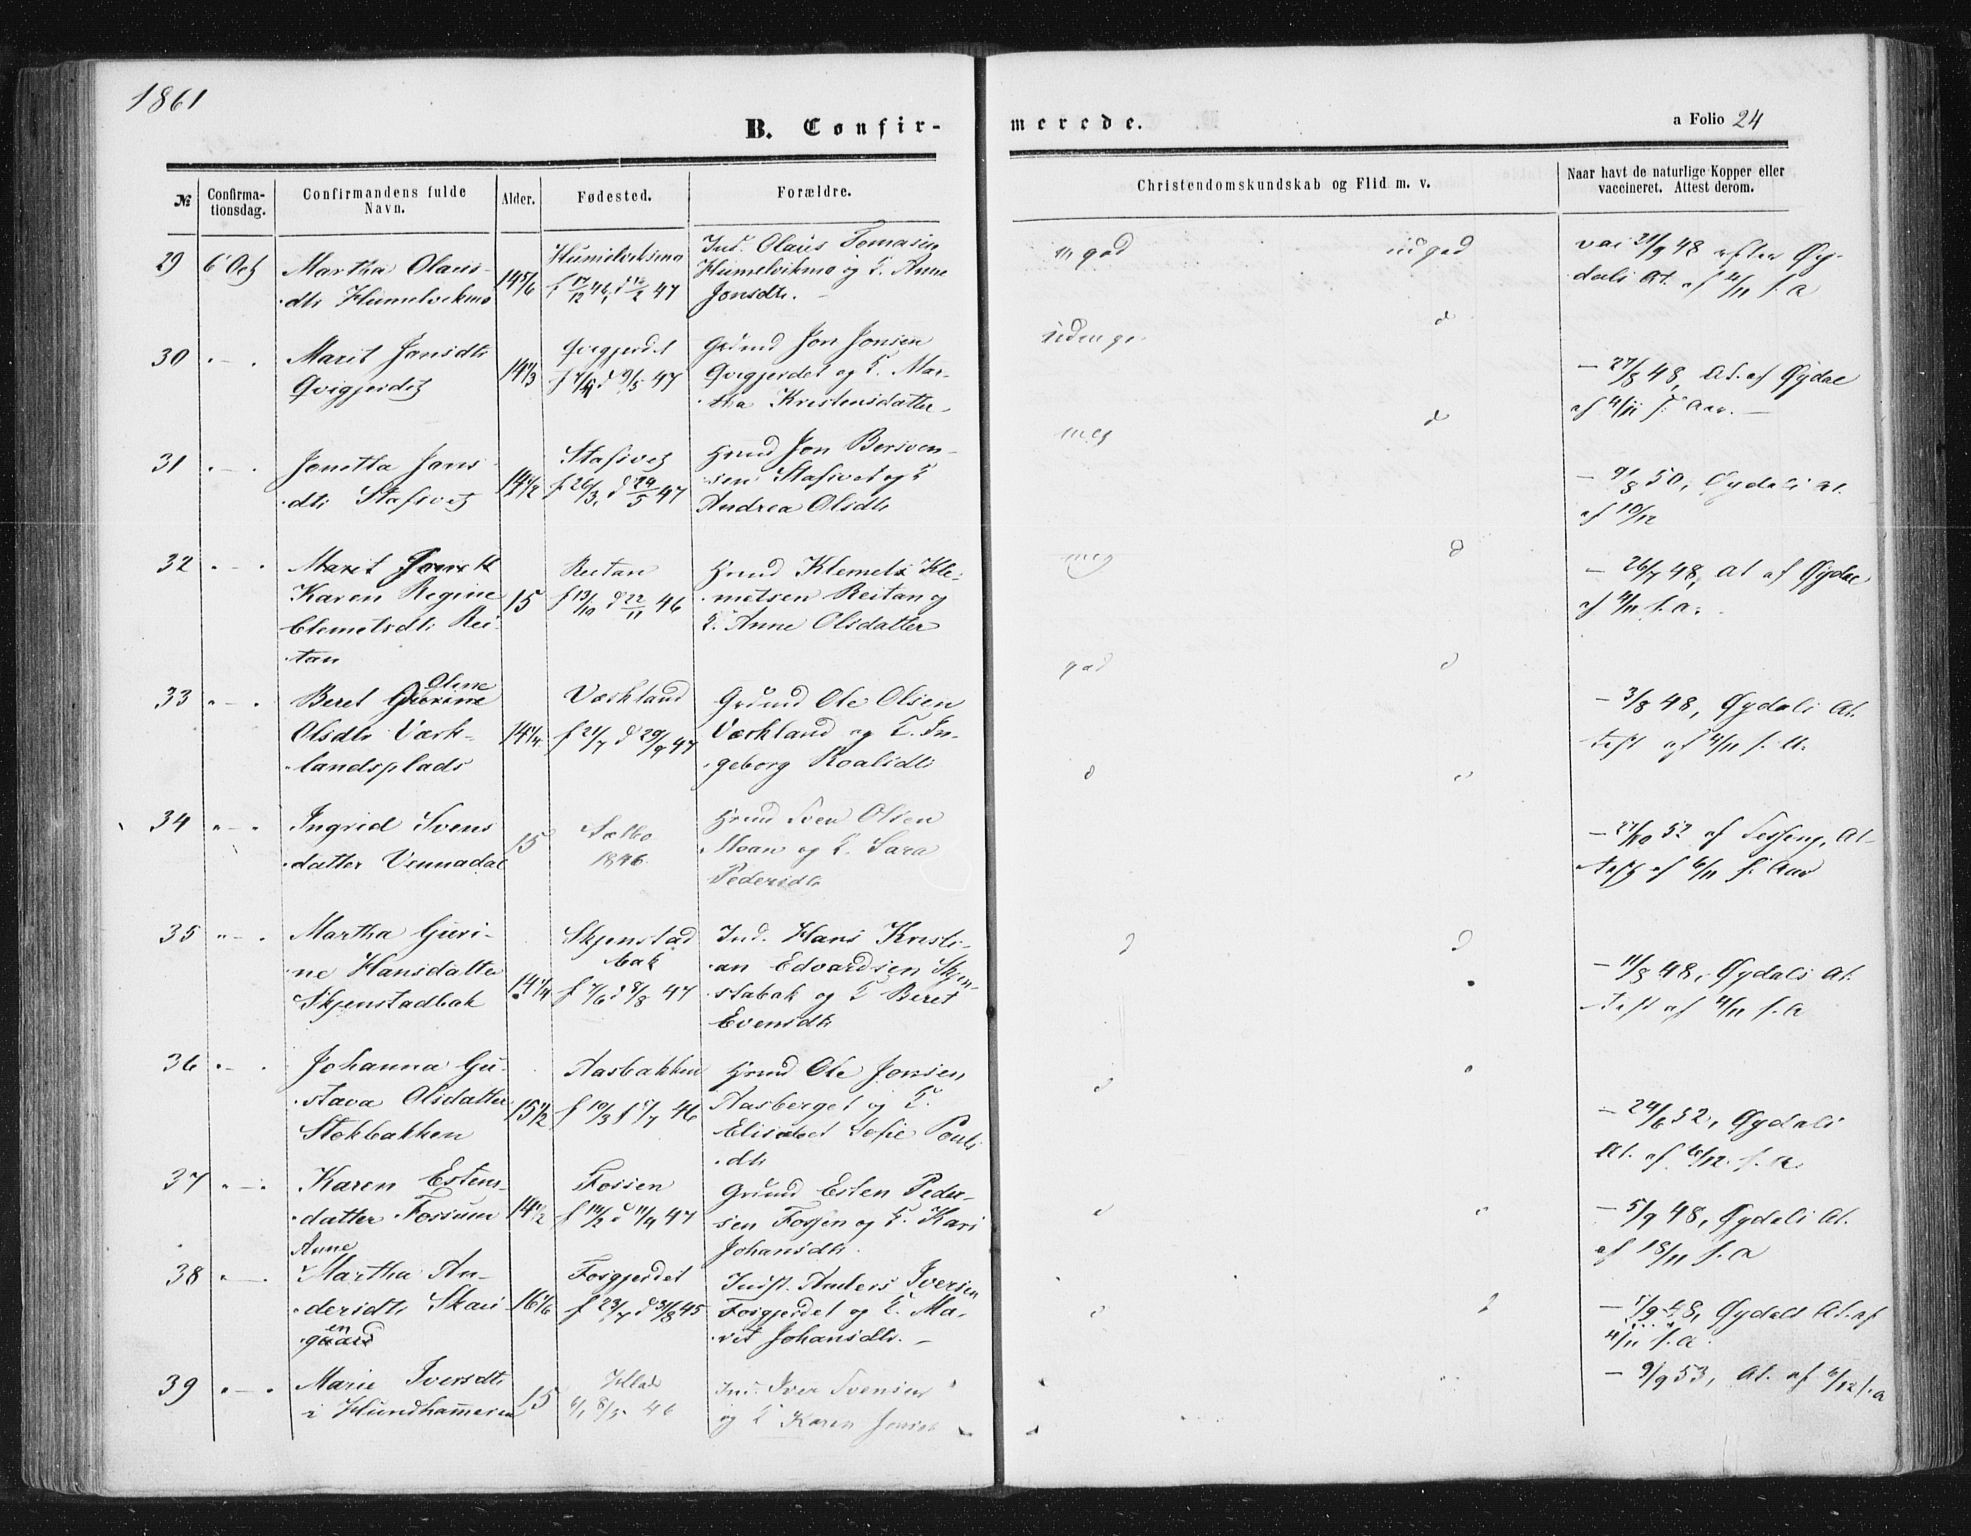 1861
B. Confirmerede.
a Folio 24
№ Confirmationsdag. Confirmandens fulde Navn. Alder. Fødested. Forældre. Christendomskundskab og Flid m. v. Naar havt de naturlige Kopper eller vaccineret. Attest derom.
29 6 Oct Martha Olaus-
dtr Humelvikmo
14 5/6
Humelviksmo
f 17/12 46, d 47
Ind. Olaus Tomasen
Humelvikmo og E. Anne
Jonsdtr.
m god
m god
vac 21/9 48 efter Øy-
dals At. af 4/11 s. a
30 " — " Marit Jonsdtr
Qvigjerdet
14 1/3
Qvigjerdet
47
Grund Jon Jonsen
Qvigjerdet og E. Mar-
tha Kristensdatter
d
— 27/8 48, At. af Øydal
af 4/11 s. Aar. —
31 " — " Jonetta Jons-
dtr Stafsvet
14 1/2
Stafsvet
f 26/3, d 24/5 47
Hmd Jon Bersven-
sen Stafsvet og E
Andrea Olsdtr
meg
d
— 9/8 50, Øydals At.
af 10/12
32 " — " Marit Jonsdt
Karen Regine
Clemetsdtr Rei-
tan
15
Reitan
f 19/10 d 22/11 46
Hmd Klemet Kle-
metsen Reitan og
E. Anne Olsdatter
meg
d
— 26/7 48, At af Øydal
af 4/11 s. a.
33 " — " Beret Gurine Oline
Olsdtr Værk-
landsplads
14 1/4
Værkland
f 21/7 d 29/9 47
Grund Ole Olsen
Værkland og E. In-
geborg Roalsdtr
god
d
— 3/8 48, Øydals At-
test af 4/11 s. A.
34 " — " Ingrid Svens
datter Vennadal
15
Selbo
1846
Hmd Sven Olsen
Moan og E. Sara
Pedersdtr
d
"
— 27/10 52 af Tesseng, At-
test af 6/11 s. Aar
35 " — " Martha Guri-
ne Hansdatter
Skjenstadbak
14 1/4
Skjenstad
bak
f 7/6 d 8/8 47
Ind. Hans Kristi-
an Edvardsen Skjen-
stabak og E Beret
Evensdtr
d
d
— 11/8 48, Øydals At-
test af 4/11 s. a
36 " — " Johanna Gu-
stava Olsdatter
Stokbakken
15 1/2
Aasbakken
f 10/3 46
Hmd Ole Jonsen
Aasberget og E.
Elisabet Sofie Pouls
dtr
d
— 24/6 52, Øydals
At. af 6/12. s. a.
37 " — " Karen Estens-
datter Fossum
14 1/2
Fossen
f 14/2 d 11/4 47
Grund Esten Peder-
sen Fossen og E. Kari
Johansdtr.
d
"
— 5/9 48, Øydals At.
af 18/11 s. a
38 " — " Anne
Martha An-
dersdtr Skars
guard en
16 1/6
Fosgjerdet
f 23/7 d 31/8 45
Indst. Anders Iversen
Fosgjerdet og E. Ma-
rit Johansdtr. —
d
— 1/9 48, Øydals At. af
4/11 s. a.
39 " — " Marie Iversdtr
i Hundhameren
15
46
Ind. Iver Svensen
og E Karen Jonsd
— 9/9 53, At. af 6/12 s. a